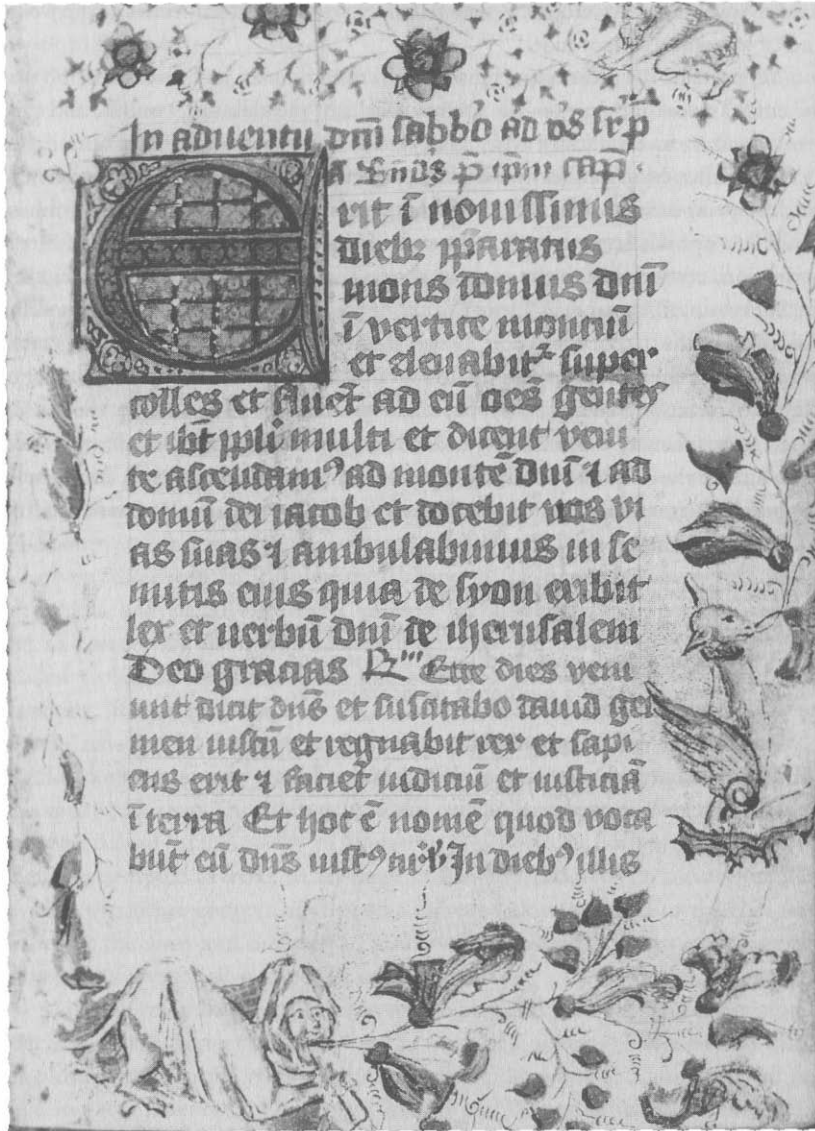 In aduentu dnī sabbō ad vs̄ sr̄ p̄
a Bn̄ds p̄ ip̄m cap̄
Erit ī nouissimis
diebꝫ p̄paratus
mons domus dnī
ī vertice montiū
et eleuabit᷑ super
colles et fluet̄ ad eū oēs gentes
et ibt̄ pp̄li multi et dicent veni
te ascendamꝰ ad montē dnī ⁊ ad
domū dei iacob et docebit nos vi
as suas ⁊ ambulabimus in se
mitis eius quia de syon exibit
lex et uerbū dnī de iherusalem
Deo gracias R̷ Ecce dies veni
unt dicit dn̄s et suscitabo dauid ger
men iustū et regnabit rex et sapi
ens erit ⁊ faciet̄ iudiciū et iusticiā
ī terra Et hoc ē nomē quod voca
būt eū dn̄s iustꝰ nr̄ ℣ In diebꝰ illis